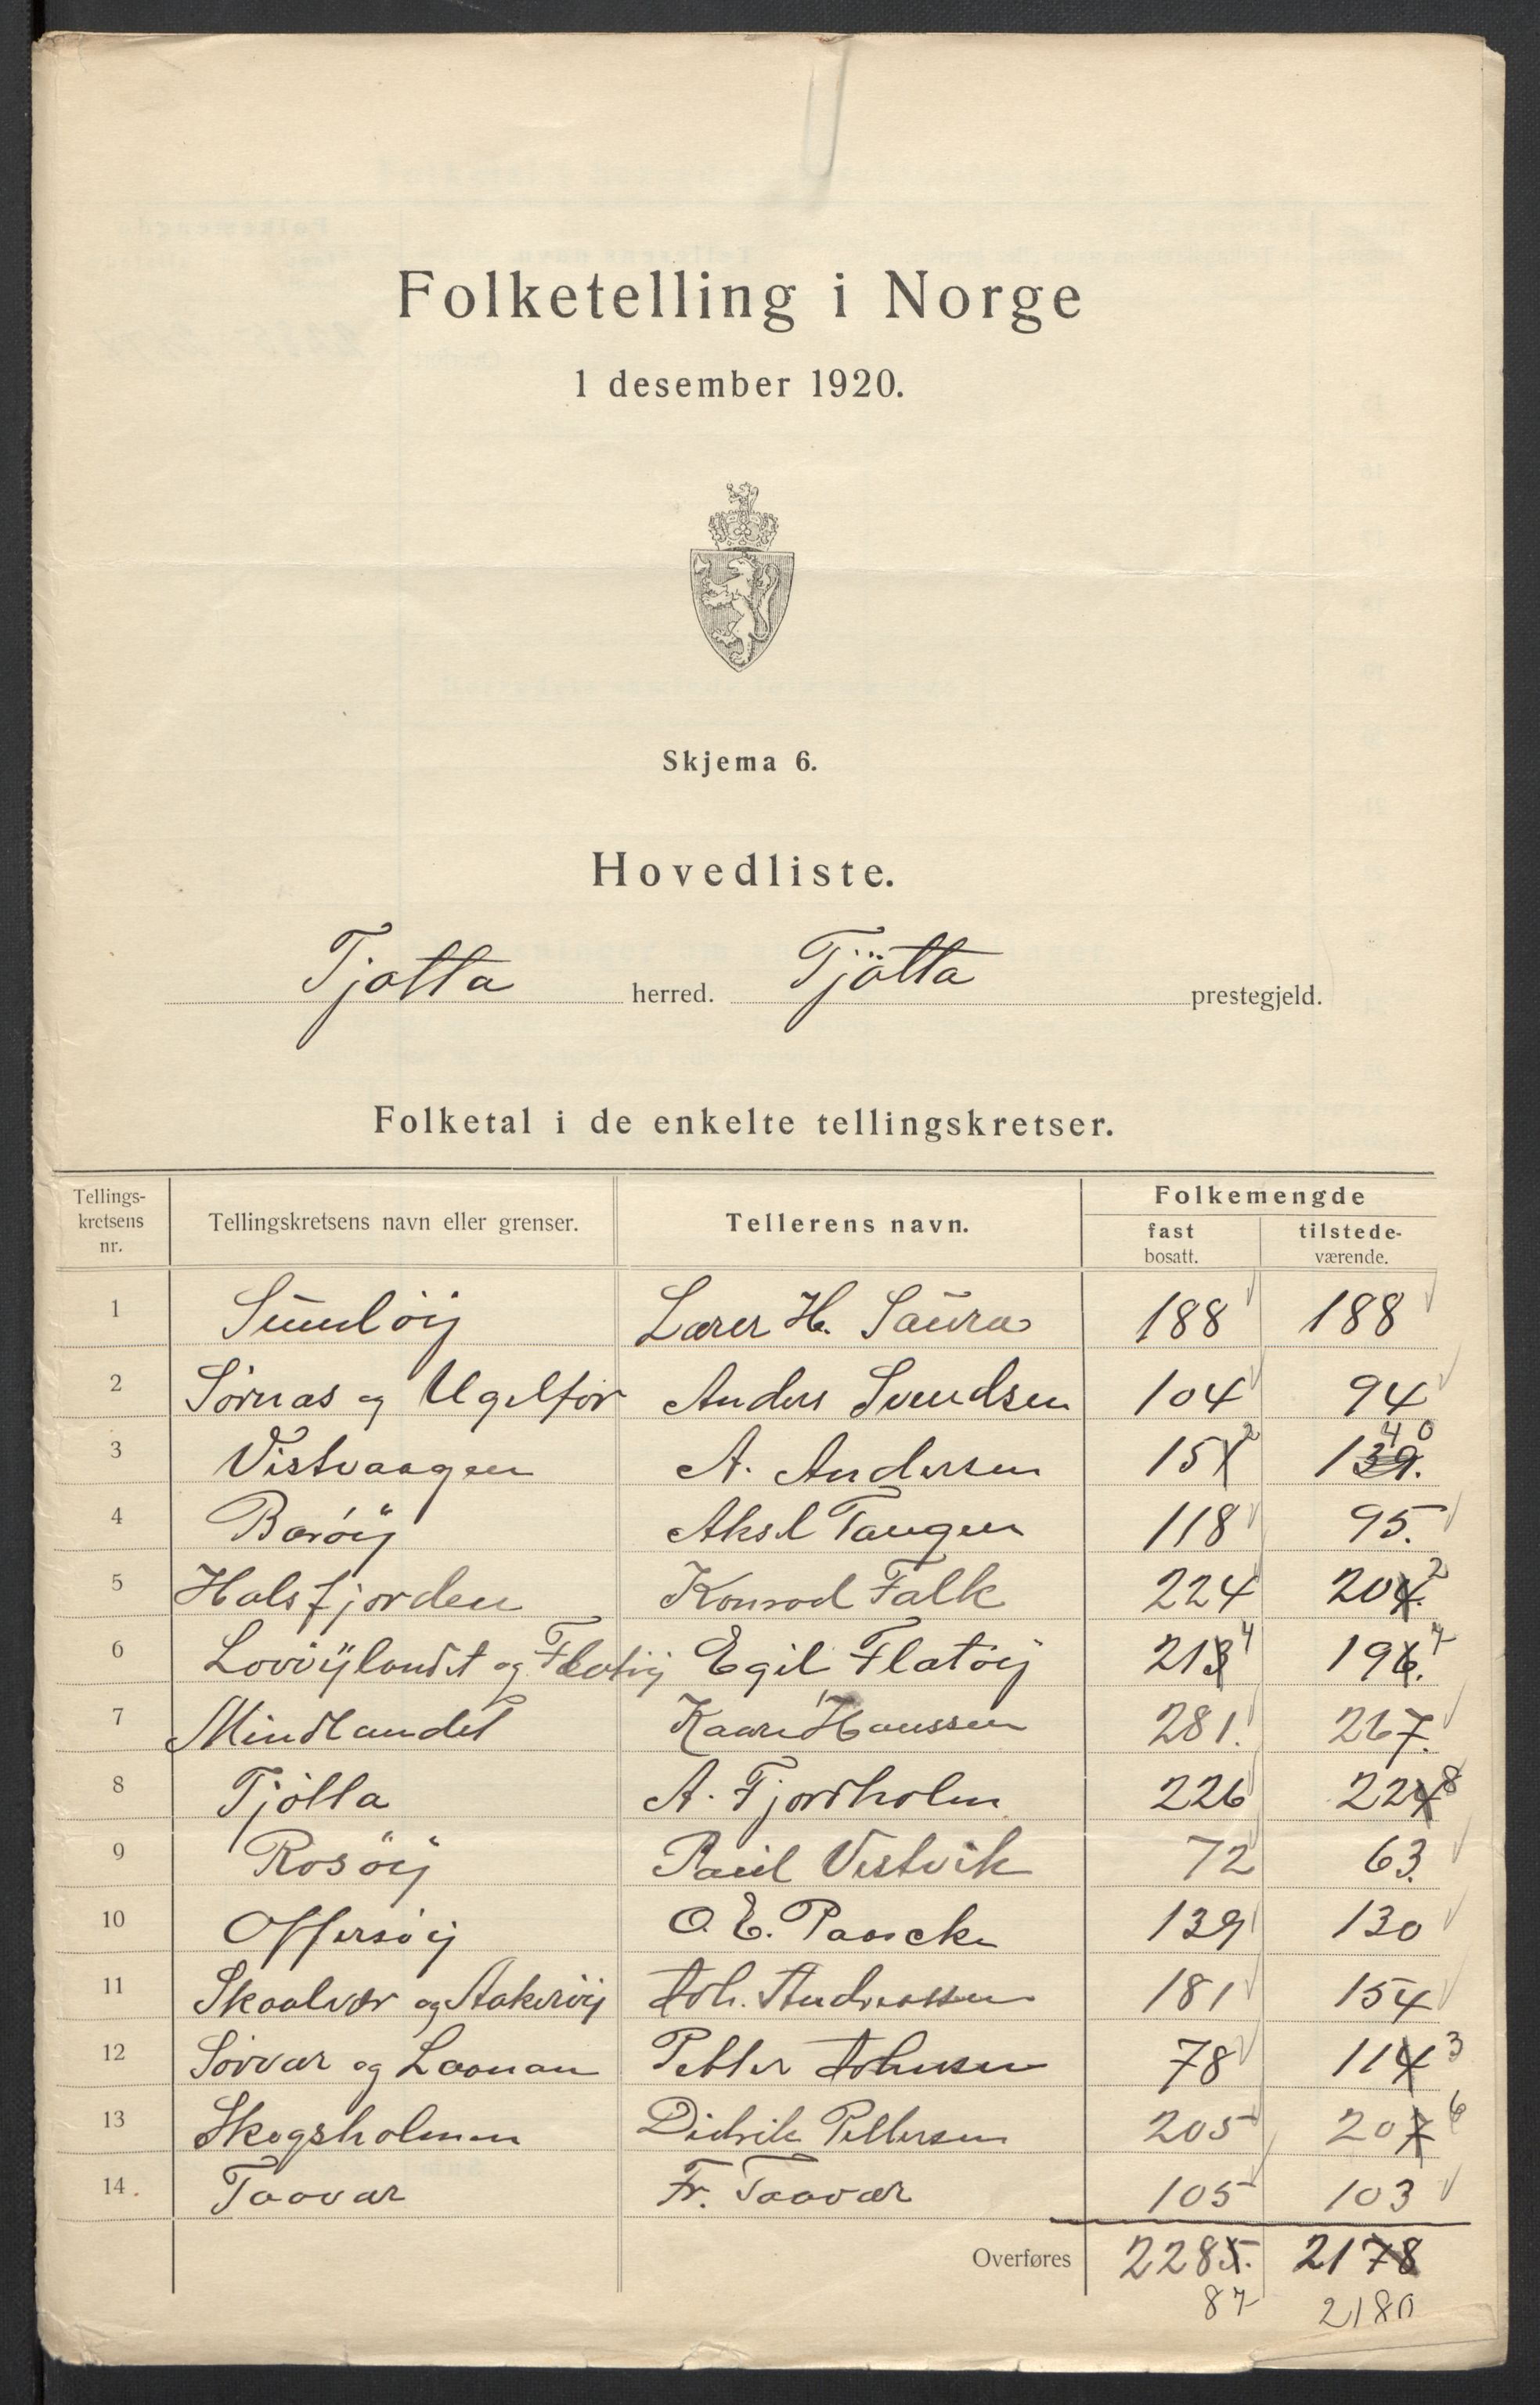 Folketelling i Norge
1 desember 1920.
Skjema 6.
Hovedliste.
Tjøtta herred. Tjøtta prestegjeld.
Folketal i de enkelte tellingskretser.
Tellings-
kretsens
nr.
Tellingskretsens navn eller grenser.
Tellerens navn.
Folkemengde
fast
bosatt.
tilstede-
værende.
1 Lærer H. 188 188
2 Sørnæs og Anders Svendsen 104 94
3 Vistvaagen A. Andersen 151 2 139. 40
4 Barøy Aksel Tangen 118 95.
5 Halsfjorden Konrad Falk 224 204. 2
6 Lovøylandet og Flatøy Egil Flatøy 213 4 196. 7
7 Mindlandet Kaare Hanssen 281. 267.
8 Tjøtta A. Fjordholm 226 224 8
9 Rosøy Paul Vistvik 72 63.
10 Offersøy O. E. 139 130
11 Skaalvær og Aakerøy Joh. Andreassen 181 154
12 Sørvær og Laanan Petter Johnsen 78 114 3
13 Skogsholmen Didrik Pettersen 205 207 6
14. Taavær Fr. Taavær 105 103
Overføres 2285. 2178
87 2180